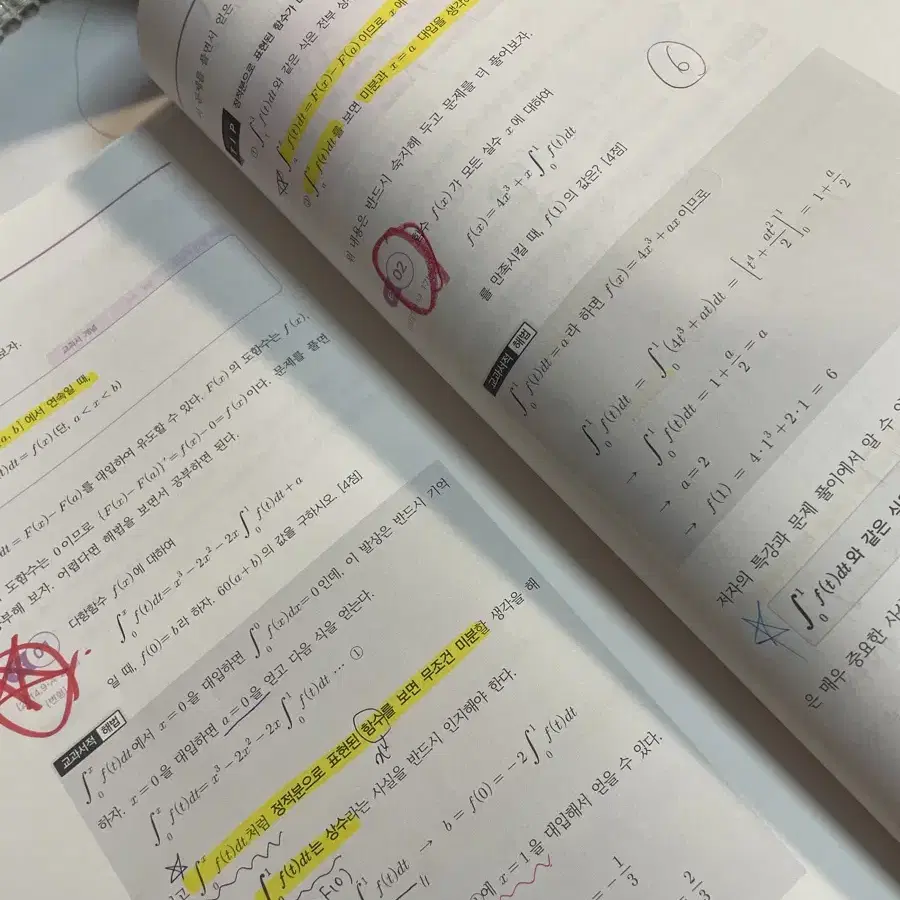 보자.
교과서 개념
[a, b]에서 연속일 때,
f(t)dt = f(x) (단, a < x < b)
dt = F(x) − F(a)를 대입하여 유도할 수 있다. F(x)의 도함수는 f(x),
도함수는 0이므로 {F(x) − F(a)}′ = f(x) − 0 = f(x)이다. 문제를 풀면
부해 보자. 어렵다면 해법을 보면서 공부하면 된다.
다항함수 f(x)에 대하여
∫₀ˣ f(t)dt = x³ − 2x² − 2x∫₀¹ f(t)dt + a
일 때, f(0) = b라 하자. 60(a+b)의 값을 구하시오. [4점]
교과서적 해법
∫₀ˣ f(t)dt에서 x = 0을 대입하면 ∫₀⁰ f(x)dx = 0인데, 이 발상은 반드시 기억
하자. x = 0을 대입하면 a = 0을 얻고 다음 식을 얻는다.
∫₀ˣ f(t)dt = x³ − 2x² − 2x∫₀¹ f(t)dt … ①
∫₀ˣ f(t)dt처럼 정적분으로 표현된 함수를 보면 무조건 미분할 생각을 해
∫₀¹ f(t)dt는 상수라는 사실을 반드시 인지해야 한다.
f(t)dt → b = f(0) = −2∫₀¹ f(t)dt
에 x = 1을 대입해서 얻을 수 있다.
= −1/3
2/3
TIP
정적분으로 표현된 함수가
① ∫₀¹ f(t)dt와 같은 식은 전부 상
f(t)dt = F(x) − F(a)이므로 x에
f(t)dt를 보면 미분과 x = a 대입을 생각
위 내용은 반드시 숙지해 두고 문제를 더 풀어보자.
6
02
함수 f(x)가 모든 실수 x에 대하여
f(x) = 4x³ + x∫₀¹ f(t)dt
를 만족시킬 때, f(1)의 값은? [4점]
교과서적 해법
∫₀¹ f(t)dt = a라 하면 f(x) = 4x³ + ax이므로
∫₀¹ f(t)dt = ∫₀¹ (4t³ + at)dt = [t⁴ + at²/2]₀¹ = 1 + a/2
→ ∫₀¹ f(t)dt = 1 + a/2 = a
→ a = 2
→ f(1) = 4·1³ + 2·1 = 6
저자의 특강과 문제 풀이에서 알 수
∫₀¹ f(t)dt와 같은
은 매우 중요한